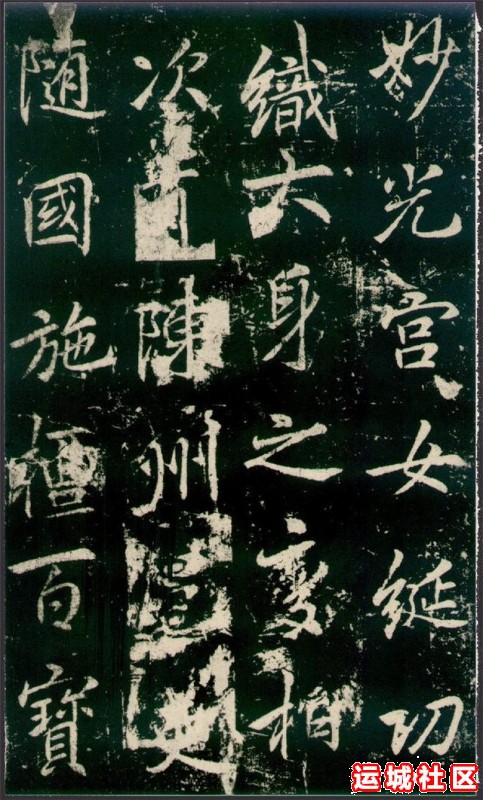 妙光宫女綖功
織六身之變相
次陳州史
随國施檀百寶
运城社区